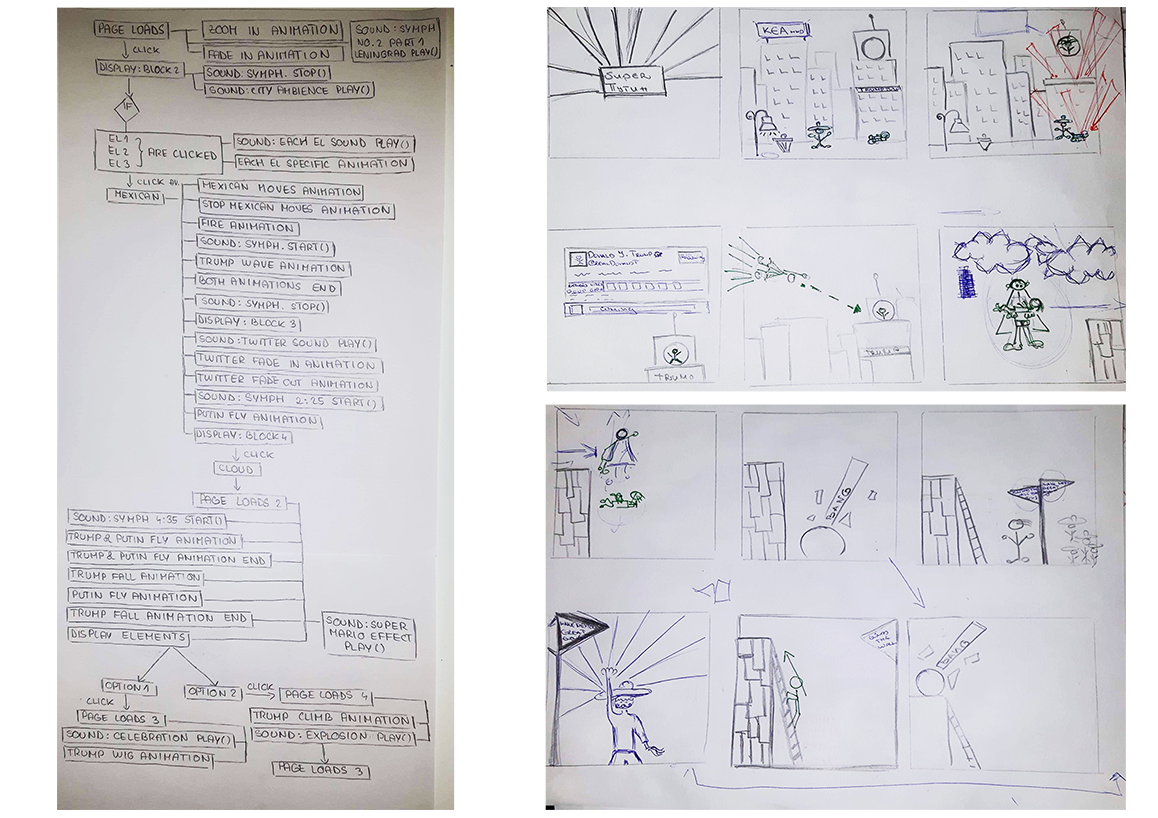 PAGE LOADS
ZOOM IN ANIMATION
FADE IN ANIMATION
SOUND: SYMPH
NO.2 PART 1
LENINGRAD PLAY()
CLICK
DISPLAY: BLOCK 2
SOUND: SYMPH. STOP()
SOUND: CITY AMBIENCE PLAY()
IF
EL 1
EL 2
EL 3
ARE CLICKED
SOUND: EACH EL SOUND PLAY()
EACH EL SPECIFIC ANIMATION
CLICK
MEXICAN
MEXICAN MOVES ANIMATION
STOP MEXICAN MOVES ANIMATION
FIRE ANIMATION
SOUND: SYMPH. START()
TRUMP WAVE ANIMATION
BOTH ANIMATIONS END
SOUND: SYMPH. STOP()
DISPLAY: BLOCK 3
SOUND: TWITTER SOUND PLAY()
TWITTER FADE IN ANIMATION
TWITTER FADE OUT ANIMATION
SOUND: SYMPH 2:25 START()
PUTIN FLY ANIMATION
DISPLAY: BLOCK 4
CLICK
CLOUD
PAGE LOADS 2
SOUND: SYMPH 4:35 START()
TRUMP & PUTIN FLY ANIMATION
TRUMP & PUTIN FLY ANIMATION END
TRUMP FALL ANIMATION
PUTIN FLY ANIMATION
TRUMP FALL ANIMATION END
DISPLAY ELEMENTS
SOUND: SUPER
MARIO EFFECT
PLAY()
OPTION 1
OPTION 2
CLICK
PAGE LOADS 4
CLICK
PAGE LOADS 3
SOUND: CELEBRATION PLAY()
TRUMP WIG ANIMATION
TRUMP CLIMB ANIMATION
SOUND: EXPLOSION PLAY()
PAGE LOADS 3
SUPER
ПУТИН
KEA
DONALD Y. TRUMP
I coming
TRUMP
TRUMP
BANG
BANG
THE WALL